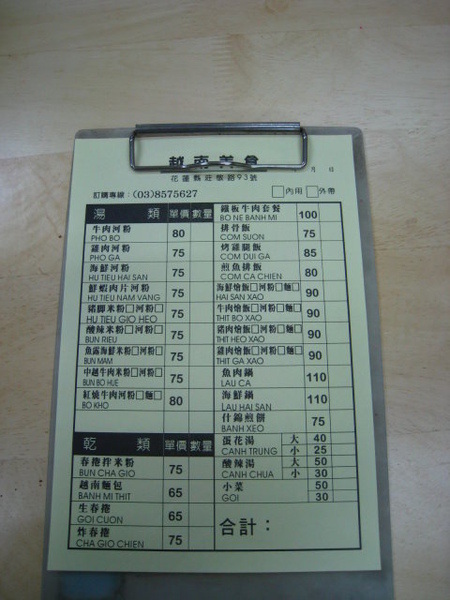 越南美食
月 日
花蓮縣莊敬路93號
訂購專線：(03)8575627 □內用 □外帶
湯 類 單價 數量
牛肉河粉
PHO BO 80
雞肉河粉
PHO GA 75
海鮮河粉
HU TIEU HAI SAN 75
鮮蝦肉片河粉
HU TIEU NAM VANG 75
豬腳米粉□河粉□
HU TIEU GIO HEO 75
酸辣米粉□河粉□
BUN RIEU 75
魚露海鮮米粉□河粉□
BUN MAM 75
中越牛肉米粉□河粉□
BUN BO HUE 75
紅燒牛肉河粉□麵□
BO KHO 80
乾 類 單價 數量
春捲拌米粉
BUN CHA GIO 75
越南麵包
BANH MI THIT 65
生春捲
GOI CUON 65
炸春捲
CHA GIO CHIEN 75
鐵板牛肉套餐
BO NE BANH MI 100
排骨飯
COM SUON 75
烤雞腿飯
COM DUI GA 85
煎魚排飯
COM CA CHIEN 80
海鮮燴飯□河粉□麵□
HAI SAN XAO 90
牛肉燴飯□河粉□麵□
THIT BO XAO 90
豬肉燴飯□河粉□麵□
THIT HEO XAO 90
雞肉燴飯□河粉□麵□
THIT GA XAO 90
魚肉鍋
LAU CA 110
海鮮鍋
LAU HAI SAN 110
什錦煎餅
BANH XEO 75
蛋花湯 大 40
CANH TRUNG 小 25
酸辣湯 大 50
CANH CHUA 小 30
小菜 50
GOI 30
合計：